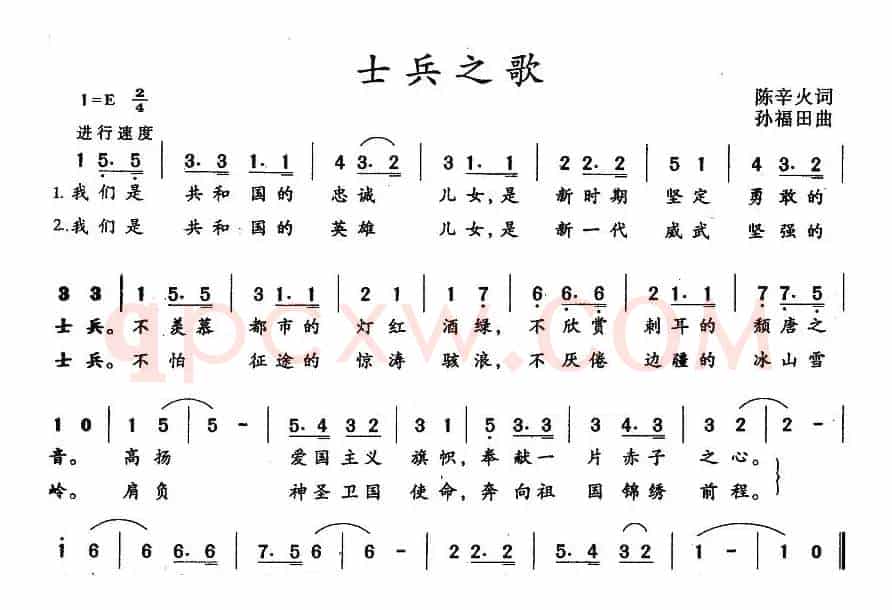 士兵之歌
1=E 2/4
陈辛火词
进行速度
孙福田曲
1 5. 5 | 3. 3 1. 1 | 4 3. 2 | 3 1. 1 | 2 2. 2 | 5 1 | 4 3. 2 |
1.我们是 共和国的 忠诚 儿女,是 新时期 坚定 勇敢的
2.我们是 共和国的 英雄 儿女,是 新一代 威武 坚强的
3 3 | 1 5. 5 | 3 1. 1 | 2 1 | 1 7 | 6 6. 6 | 2 1. 1 | 7 7. 5 |
士兵。不羡慕 都市的 灯红 酒绿,不欣赏 刺耳的 颓唐之
士兵。不怕 征途的 惊涛 骇浪,不厌倦 边疆的 冰山雪
qpcxw.COM
1 0 | 1 5 | 5 - | 5. 4 3 2 | 3 1 | 5 3. 3 | 3 4. 3 | 3 2 | 2 - |
音。高扬 爱国主义 旗帜,奉献一 片赤子 之心。
岭。肩负 神圣卫国 使命,奔向祖 国锦绣 前程。
i 6 | 6 6. 6 | 7. 5 6 | 6 - | 2 2. 2 | 5. 4 3 2 | 1 - | 1 0 ‖